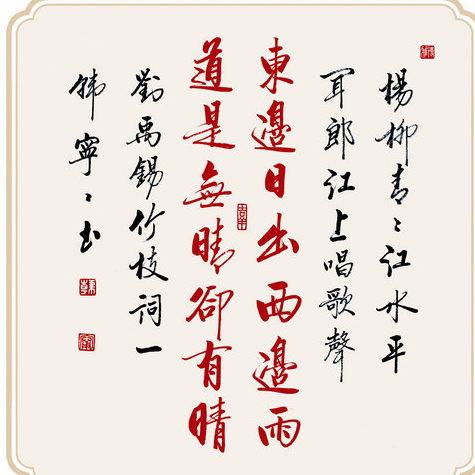 楊柳青〻江水平
聞郎江上唱歌聲
東邊日出西邊雨
道是無晴卻有晴
劉禹錫竹枝詞一
韩寧〻书